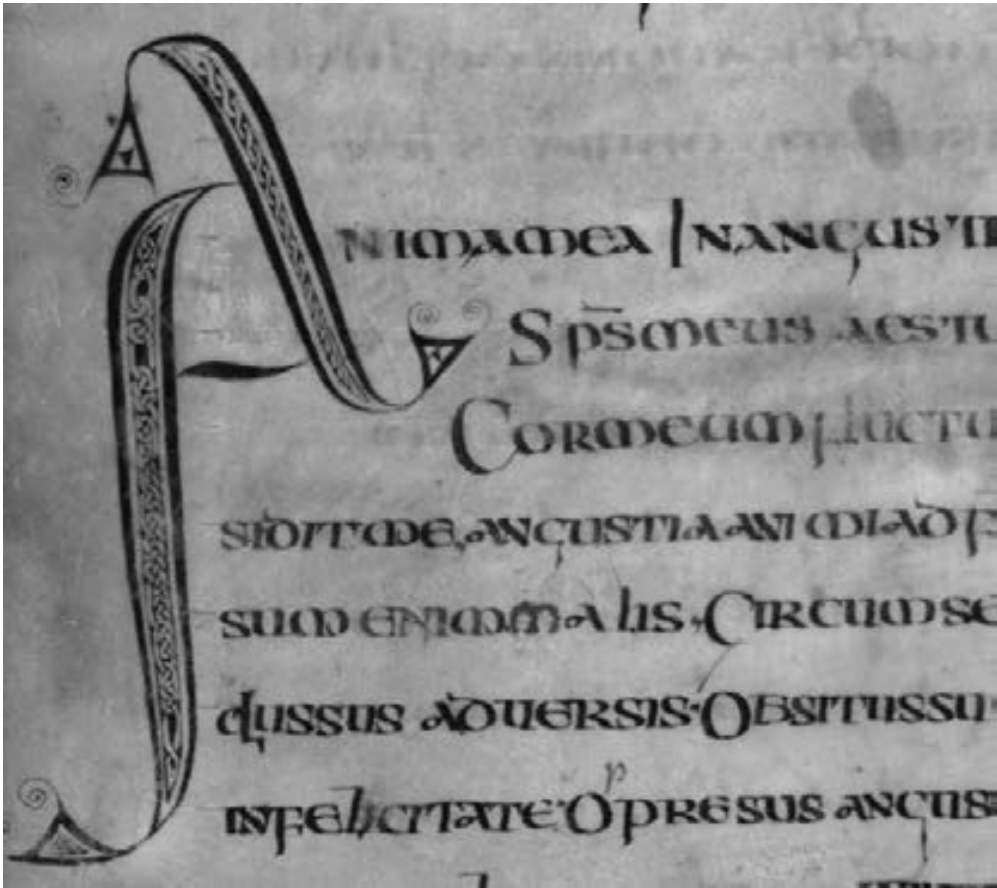 ANIMAMEA INANGUSTI
S ps̄ meus aestu
Cormeum fluctu
sidit me, angustia animi mi ad
sum enim malis, Circumse
qussus aduersis· Obsitussu
infelicitate· Opresus angus
p